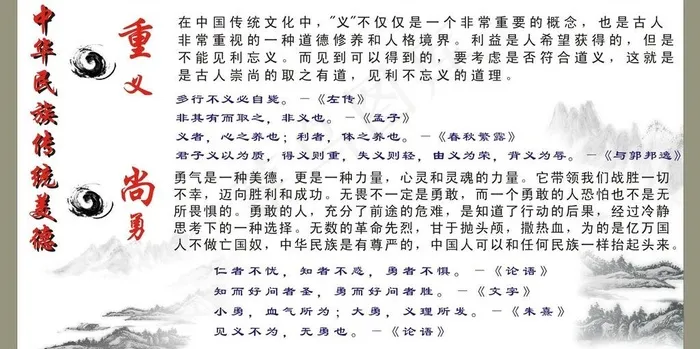 中华民族传统美德
重义
在中国传统文化中，"义"不仅仅是一个非常重要的概念，也是古人
非常重视的一种道德修养和人格境界。利益是人希望获得的，但是
不能见利忘义。而见到可以得到的，要考虑是否符合道义，这就是
是古人崇尚的取之有道，见利不忘义的道理。
多行不义必自毙。—《左传》
非其有而取之，非义也。—《孟子》
义者，心之养也；利者，体之养也。—《春秋繁露》
君子义以为质，得义则重，失义则轻，由义为荣，背义为辱。—《与郭邦逸》
尚勇
勇气是一种美德，更是一种力量，心灵和灵魂的力量。它带领我们战胜一切
不幸，迈向胜利和成功。无畏不一定是勇敢，而一个勇敢的人恐怕也不是无
所畏惧的。勇敢的人，充分了前途的危难，是知道了行动的后果，经过冷静
思考下的一种选择。无数的革命先烈，甘于抛头颅，撒热血，为的是亿万国
人不做亡国奴，中华民族是有尊严的，中国人可以和任何民族一样抬起头来。
仁者不忧，知者不惑，勇者不惧。—《论语》
知而好问者圣，勇而好问者胜。—《文字》
小勇，血气所为；大勇，义理所发。—《朱熹》
见义不为，无勇也。—《论语》